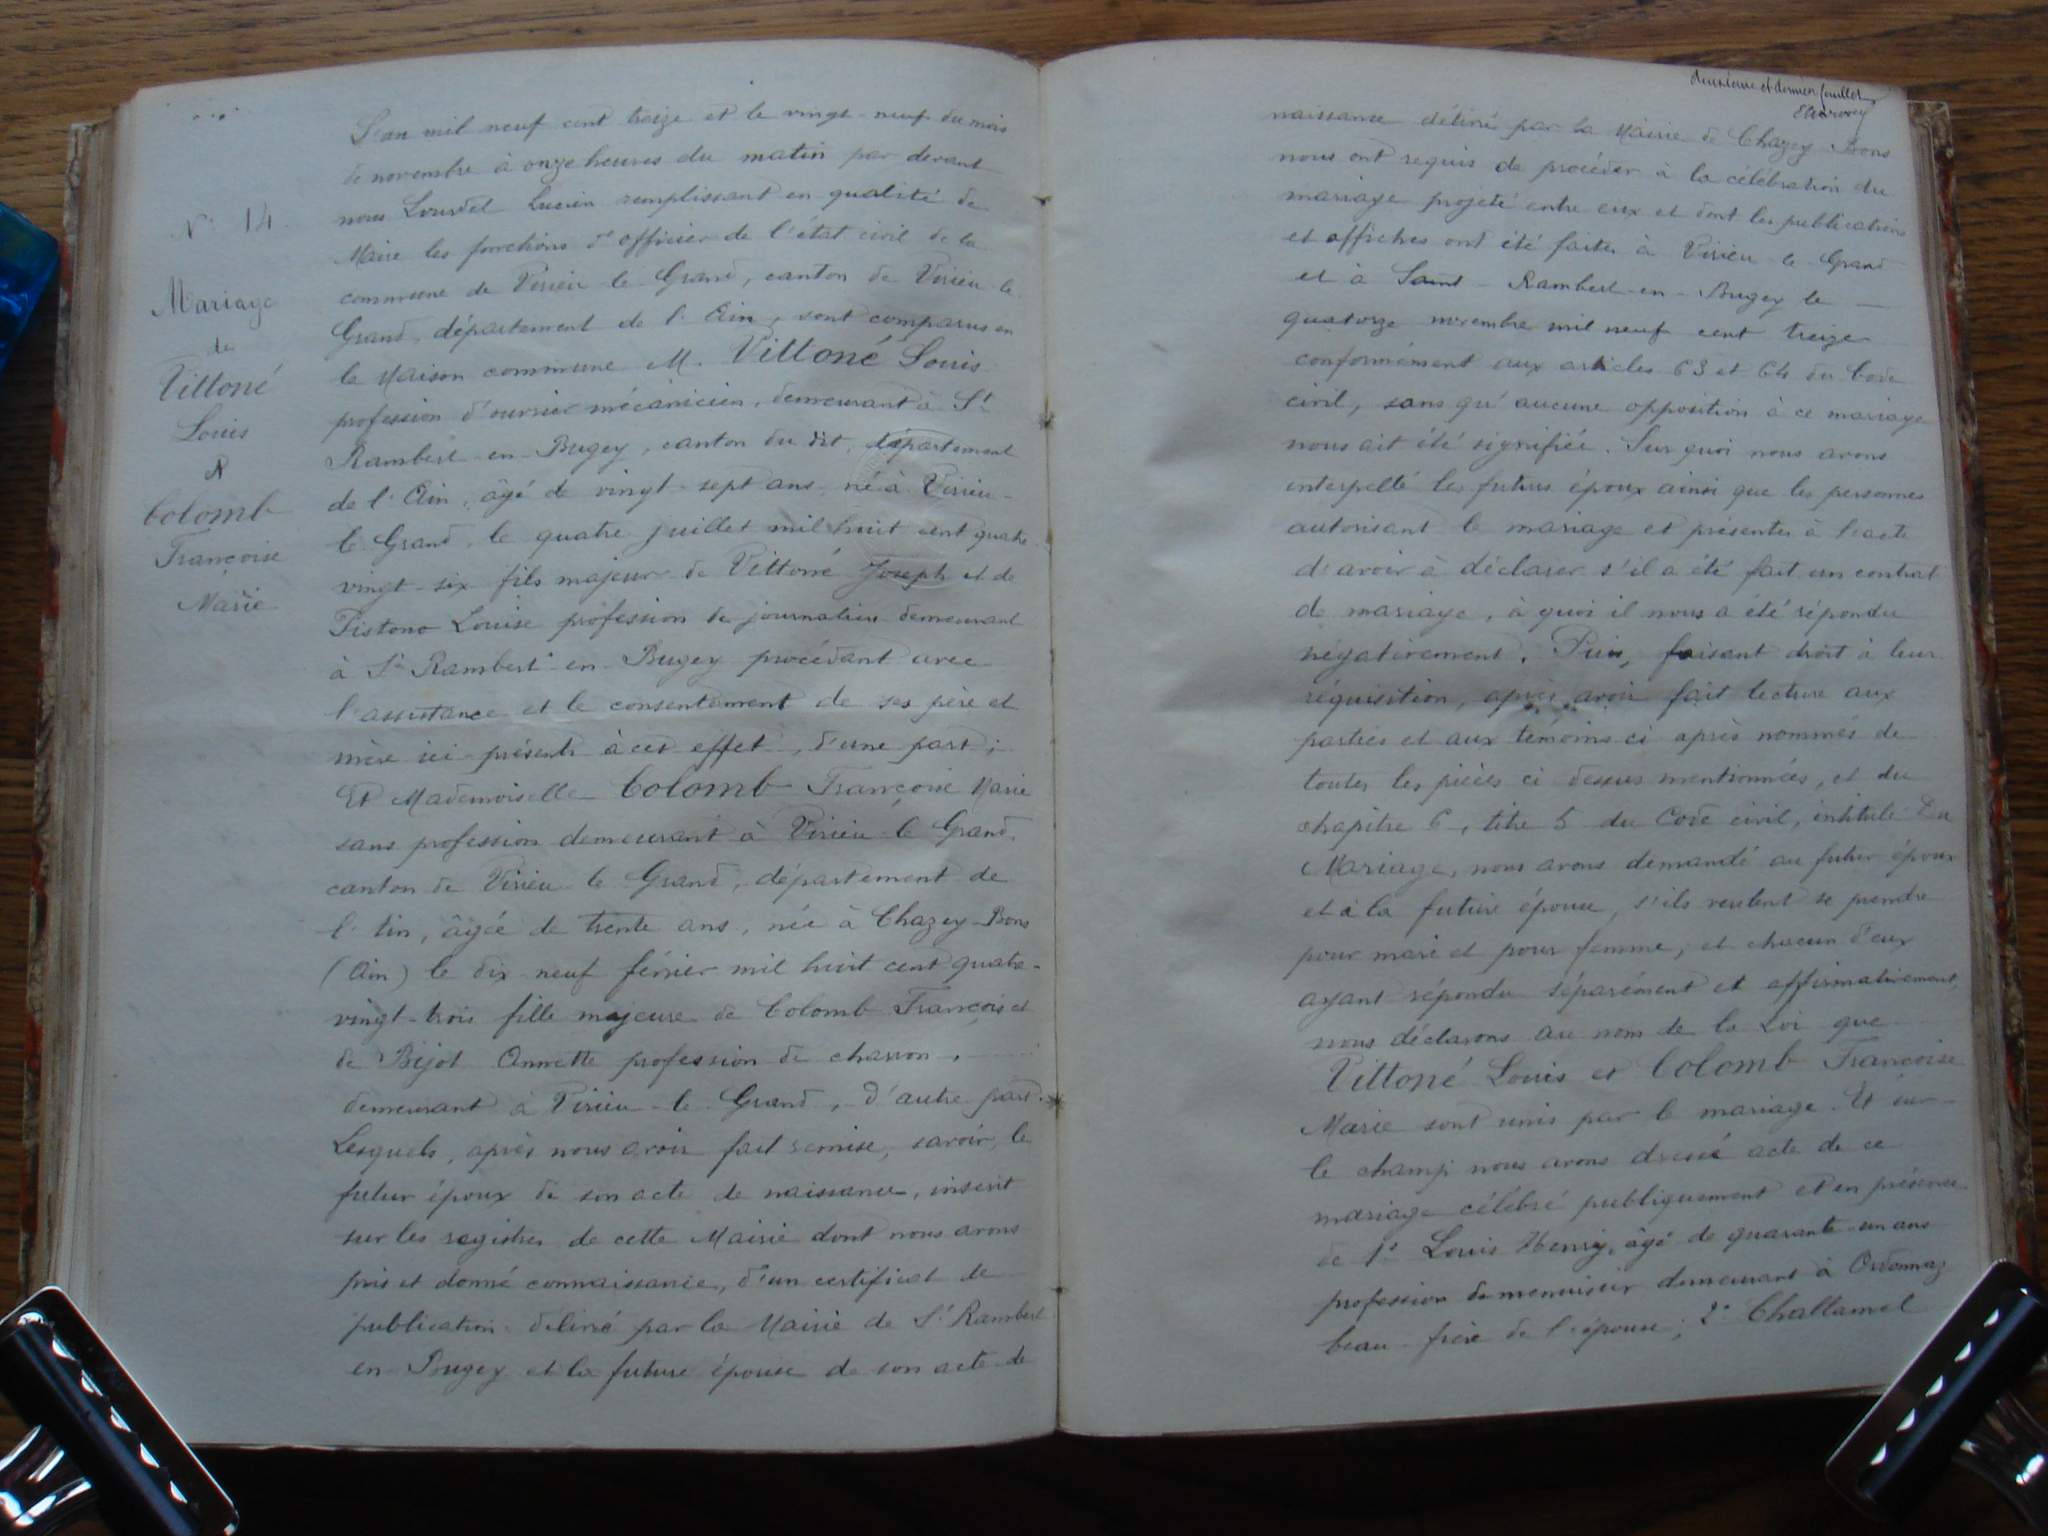 N° 14.
Mariage
de
Vittoné
Louis
et
Colomb
Françoise
Marie
L'an mil neuf cent treize et le vingt-neuf du mois
de novembre à onze heures du matin par devant
nous Lourdel Lucien remplissant en qualité de
Maire les fonctions d'officier de l'état civil de la
commune de Virieu-le-Grand, canton de Virieu-le-
Grand, département de l'Ain, sont comparus en
la Maison commune M. Vittoné Louis
profession d'ouvrier mécanicien, demeurant à St
Rambert-en-Bugey, canton du dit, département
de l'Ain, âgé de vingt-sept ans, né à Virieu-
le-Grand, le quatre juillet mil huit cent quatre-
vingt-six fils majeur de Vittoné Joseph et de
Pistono Louise profession de journaliers demeurant
à St Rambert-en-Bugey procédant avec
l'assistance et le consentement de ses père et
mère ici présents à cet effet, d'une part;
Et Mademoiselle Colomb Françoise Marie
sans profession demeurant à Virieu-le-Grand,
canton de Virieu-le-Grand, département de
l'Ain, âgée de trente ans, née à Chazey-Bons
(Ain) le dix-neuf février mil huit cent quatre-
vingt-trois fille majeure de Colomb François et
de Bijot Annette profession de charron,
demeurant à Virieu-le-Grand, d'autre part.
Lesquels, après nous avoir fait remise, savoir, le
futur époux de son acte de naissance, inscrit
sur les registres de cette Mairie dont nous avons
pris et donné connaissance, d'un certificat de
publication délivré par la Mairie de St Rambert
en-Bugey et la future épouse de son acte de
deuxième et dernier feuillet
naissance délivré par la Mairie de Chazey-Bons
nous ont requis de procéder à la célébration du
mariage projeté entre eux et dont les publications
et affiches ont été faites à Virieu-le-Grand
et à Saint-Rambert-en-Bugey le
quatorze novembre mil neuf cent treize
conformément aux articles 63 et 64 du Code
civil, sans qu'aucune opposition à ce mariage
nous ait été signifiée. Sur quoi nous avons
interpellé les futurs époux ainsi que les personnes
autorisant le mariage et présentes à l'acte
d'avoir à déclarer s'il a été fait un contrat
de mariage, à quoi il nous a été répondu
négativement. Puis, faisant droit à leur
réquisition, après avoir fait lecture aux
parties et aux témoins ci après nommés de
toutes les pièces ci dessus mentionnées, et du
chapitre 6, titre 5 du Code civil, intitulé Du
Mariage, nous avons demandé au futur époux
et à la future épouse, s'ils veulent se prendre
pour mari et pour femme, et chacun d'eux
ayant répondu séparément et affirmativement,
nous déclarons au nom de la Loi que
Vittoné Louis et Colomb Françoise
Marie sont unis par le mariage. Et sur-
le champ nous avons dressé acte de ce
mariage célébré publiquement et en présence
de 1° Louis Henry, âgé de quarante-un ans
profession de menuisier demeurant à Ordonnaz
beau-frère de l'épouse; 2° Challamel